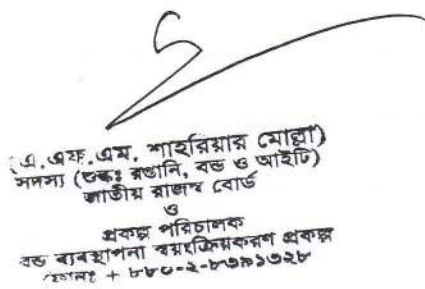 (এ.এফ.এম. শাহরিয়ার মোল্লা)
সদস্য (শুল্কঃ রপ্তানি, বন্ড ও আইটি)
জাতীয় রাজস্ব বোর্ড
ও
প্রকল্প পরিচালক
বন্ড ব্যবস্থাপনা স্বয়ংক্রিয়করণ প্রকল্প
ফোনঃ + ৮৮০-২-